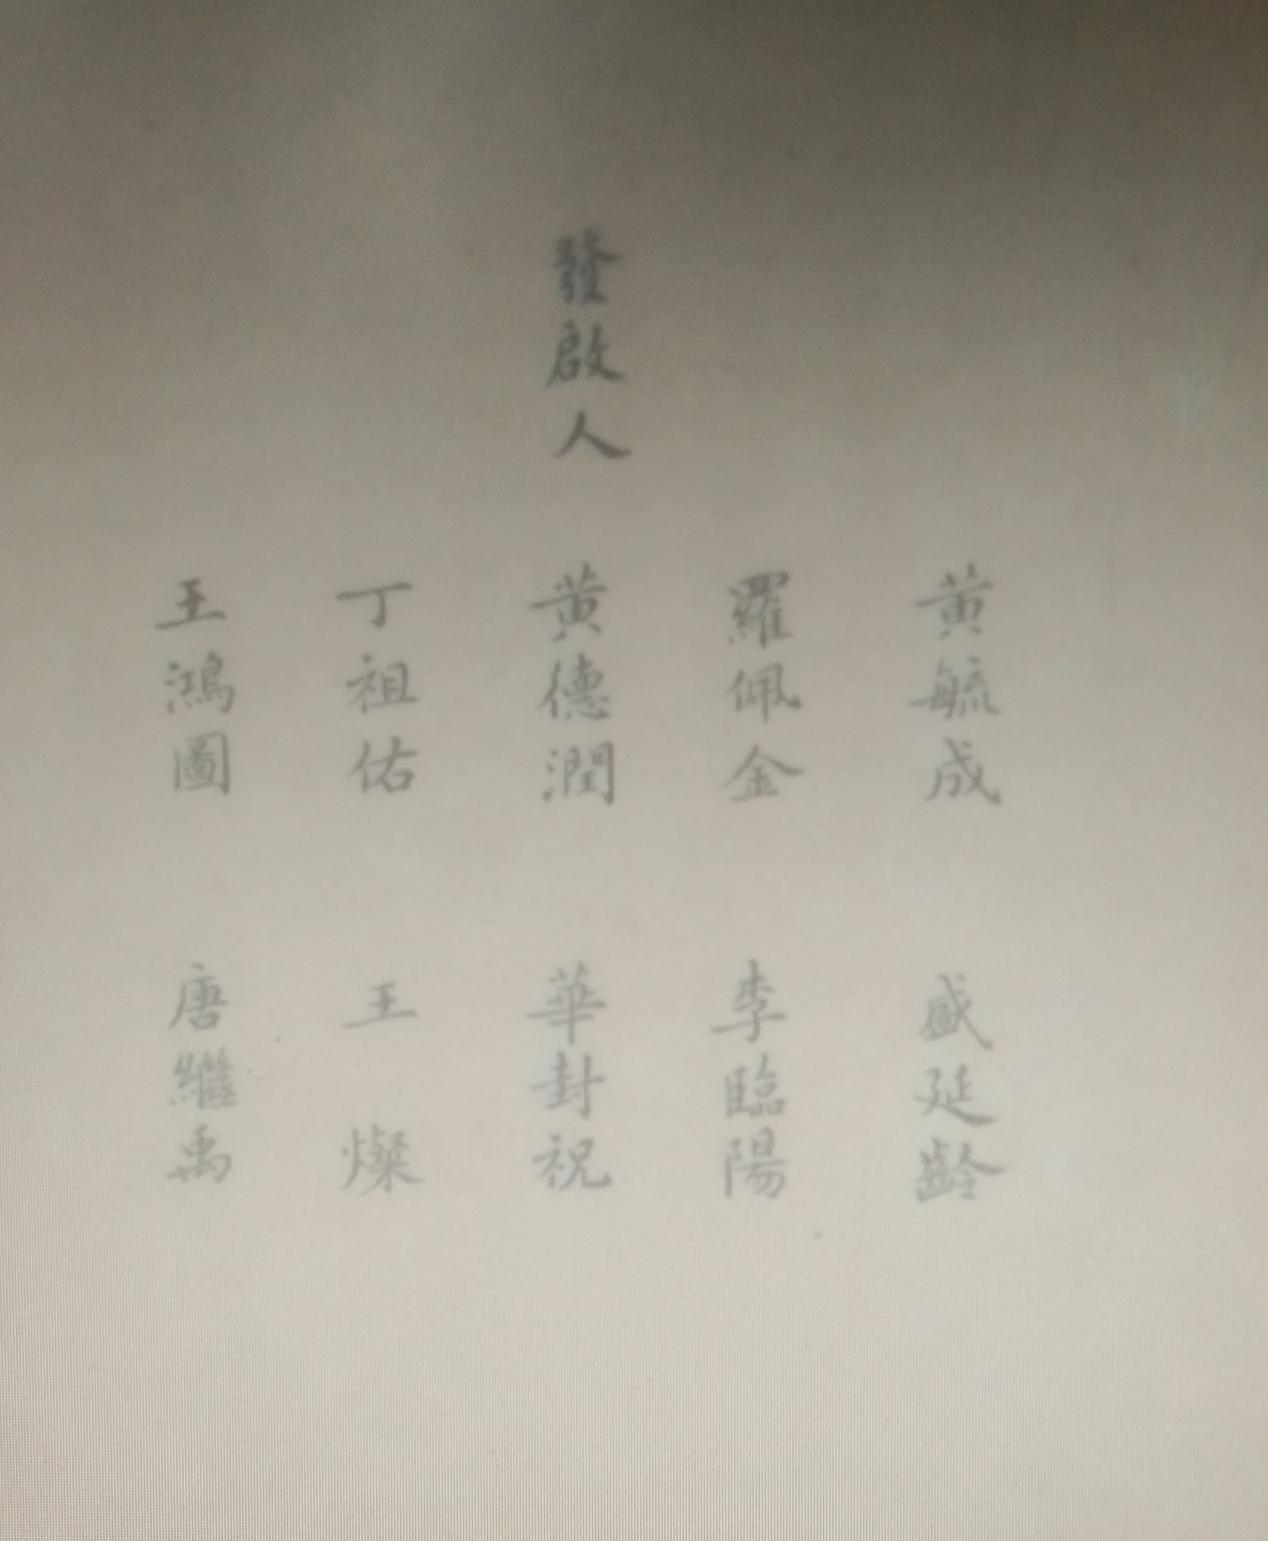 發啟人
黃毓成
盛延齡
羅佩金
李臨陽
黃德潤
華封祝
丁祖佑
王燦
王鴻圖
唐繼禹